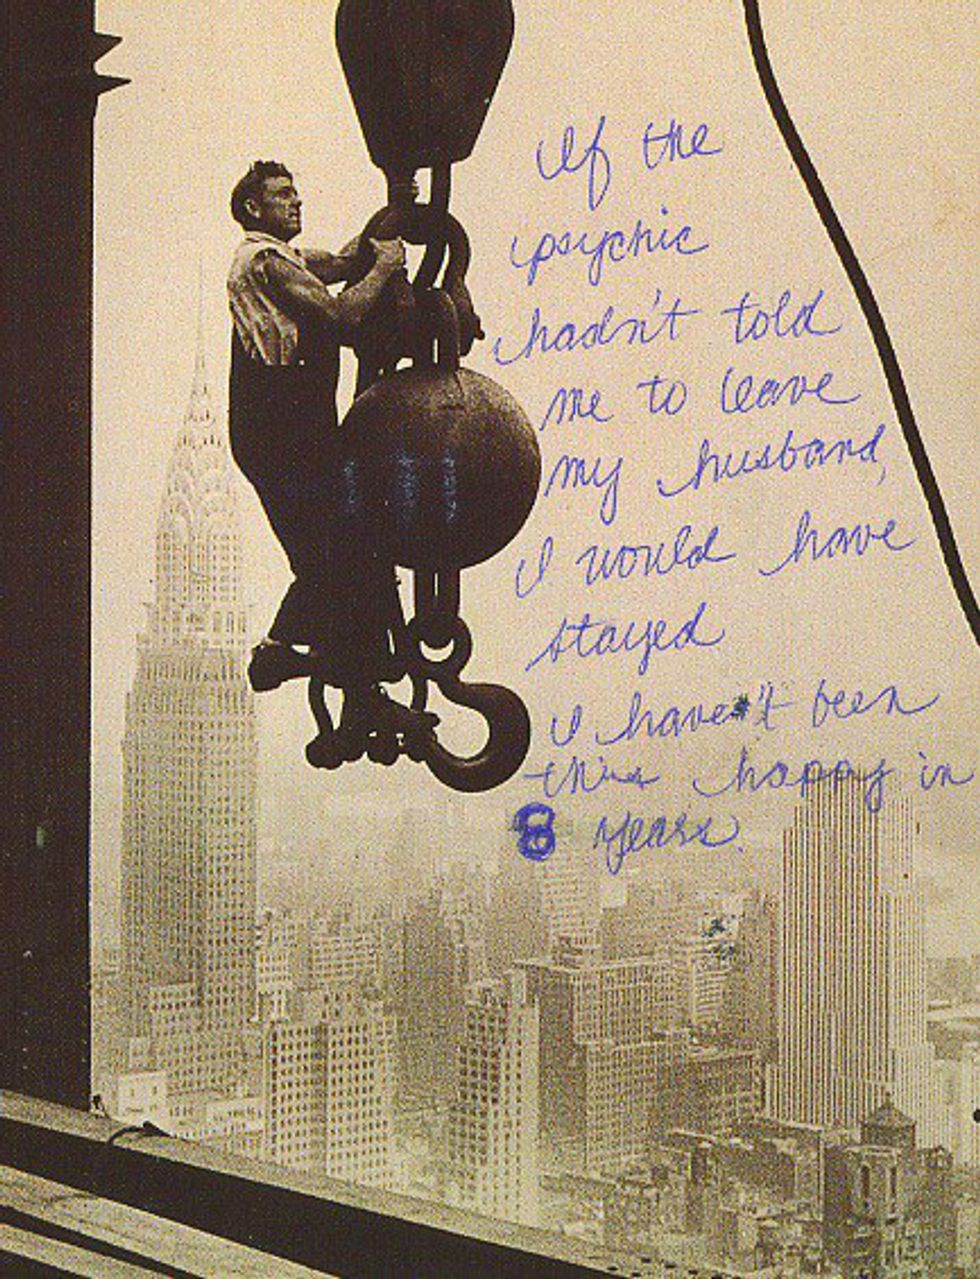 If the
psychic
hadn't told
me to leave
my husband,
I would have
stayed
I haven't been
this happy in
8 years.